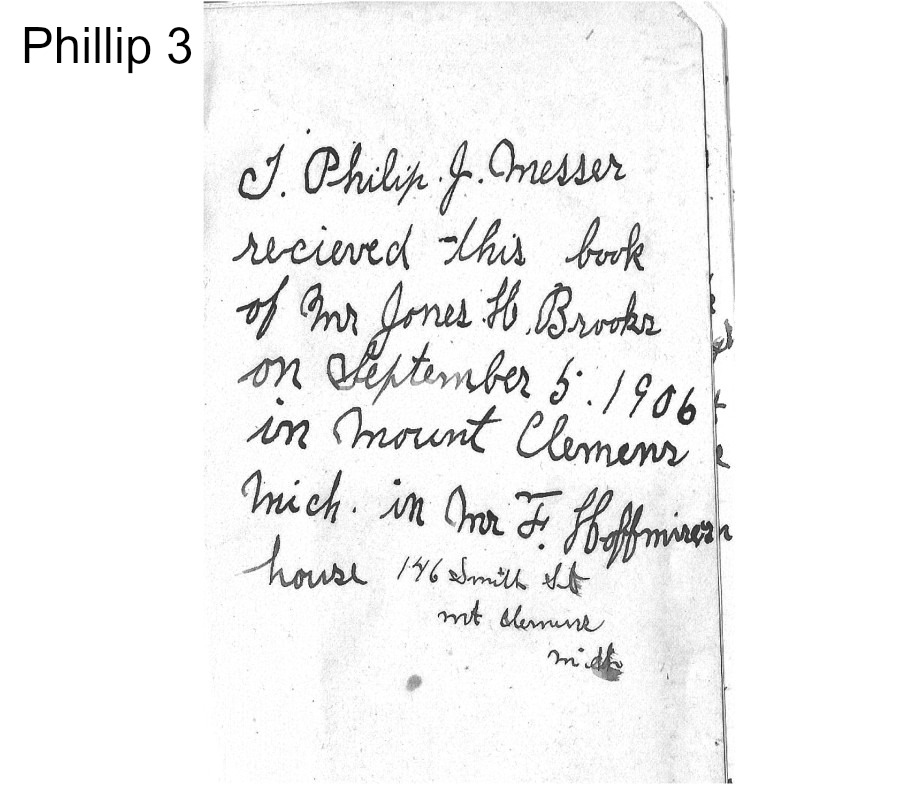 Phillip 3
I. Philip. J. Messer
recieved this book
of Mr Jones H. Brooks
on September 5. 1906
in Mount Clemens
Mich. in Mr F.
house 146 Smith St
mt Clemens
Mich